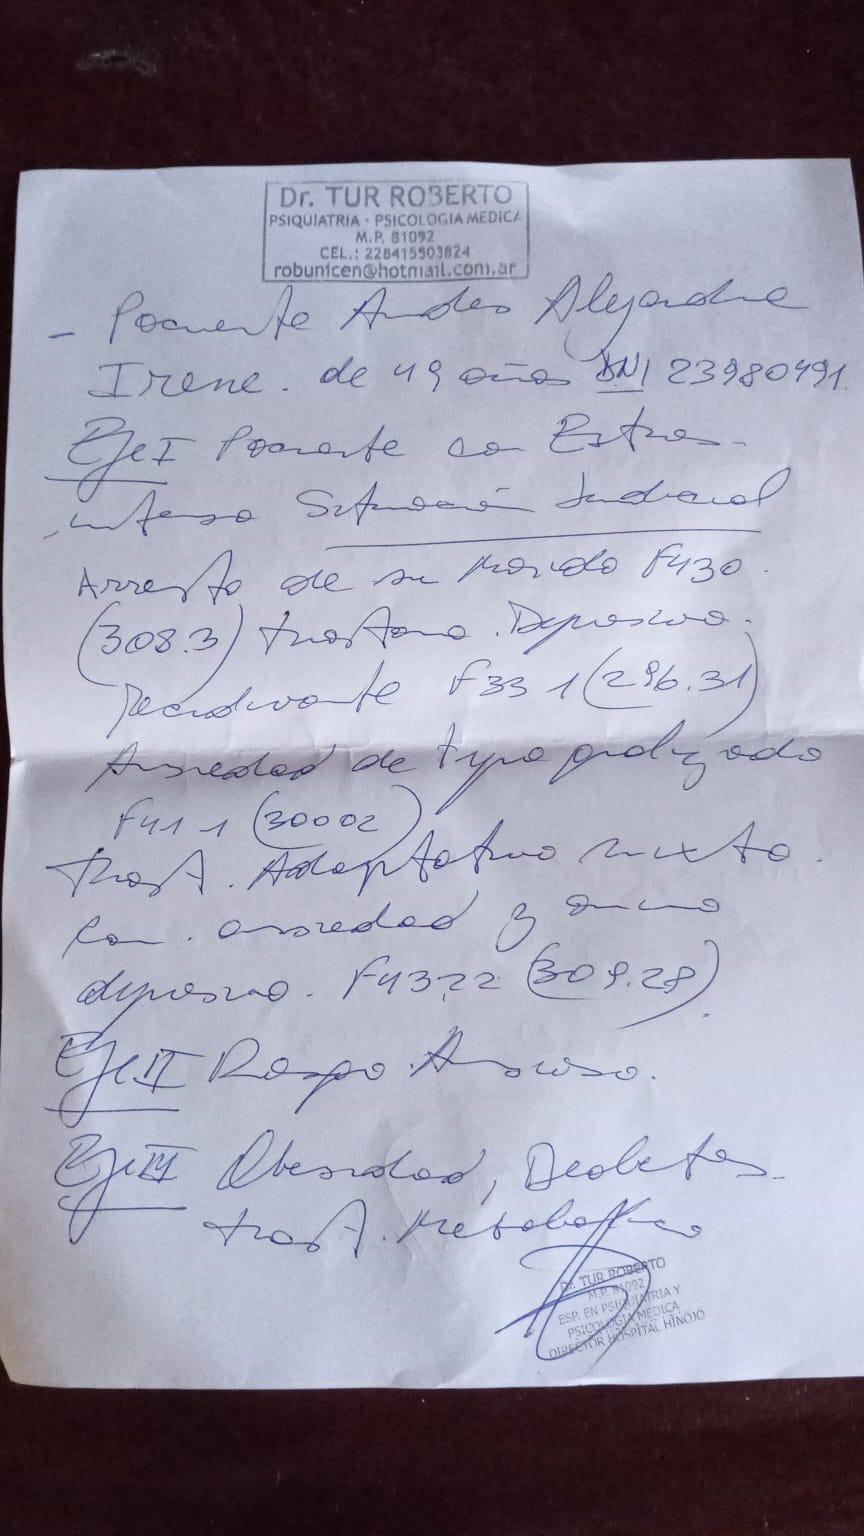 Dr. TUR ROBERTO
PSIQUIATRIA - PSICOLOGIA MEDICA
M.P. 81092
CEL.: 228415503824
robunicen@hotmail.com.ar
- Paciente Alejandra
Irene. de 49 años DNI 23980491.
Eje I Paciente con Estres
intenso Situación Judicial
Arresto de su Marido F430.
(308.3) trastorno. Depresivo.
recidivante F33 1 (296.31)
Ansiedad de tipo
F41 1 (30002)
trast. Adaptativo mixto.
con. ansiedad y animo
depresivo. F4322 (309.28).
Eje II Rasgo Ansioso.
Eje III Obesidad, Diabetes.
trast. Metabolico
Dr. TUR ROBERTO
M.P. 81092
ESP. EN PSIQUIATRIA Y
PSICOLOGIA MEDICA
DIRECTOR HOSPITAL HINOJO